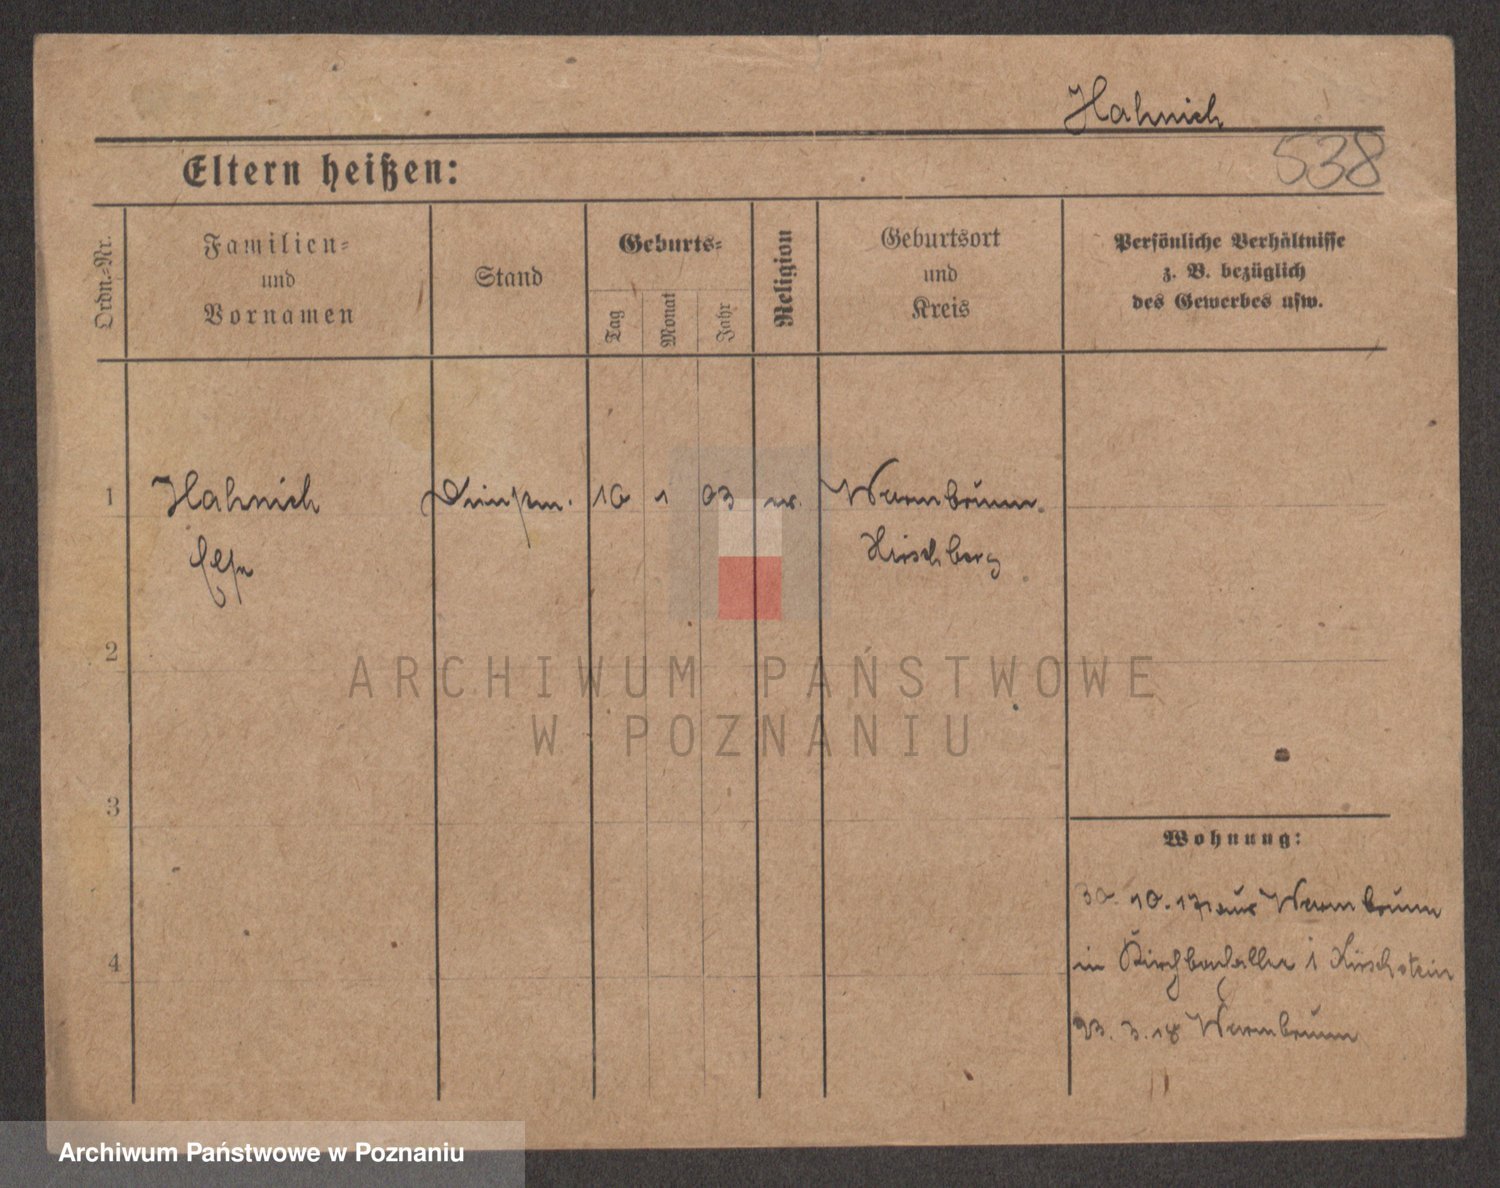 Hahnich
538
Eltern heißen:
Ordn.-Nr.
Familien-
und
Vornamen
Stand
Geburts-
Tag
Monat
Jahr
Religion
Geburtsort
und
Kreis
Persönliche Verhältnisse
z. B. bezüglich
des Gewerbes usw.
1 Hahnich 10 1 03 Warmbrunn
Else Hirschberg
2
3
4
Wohnung:
30. 10. 17 aus Warmbrunn
in
23. 3. 18 Warmbrunn
ARCHIWUM PAŃSTWOWE
W POZNANIU
Archiwum Państwowe w Poznaniu